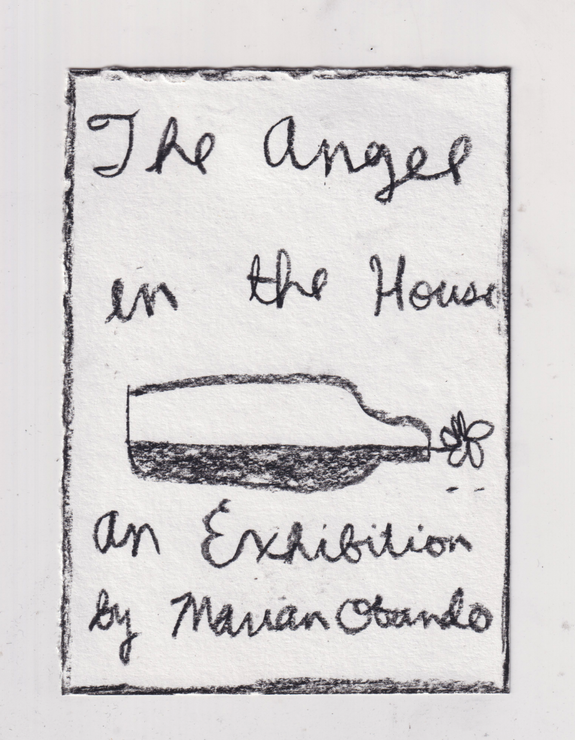 The Angel
in the House
an Exhibition
by Marian Obando